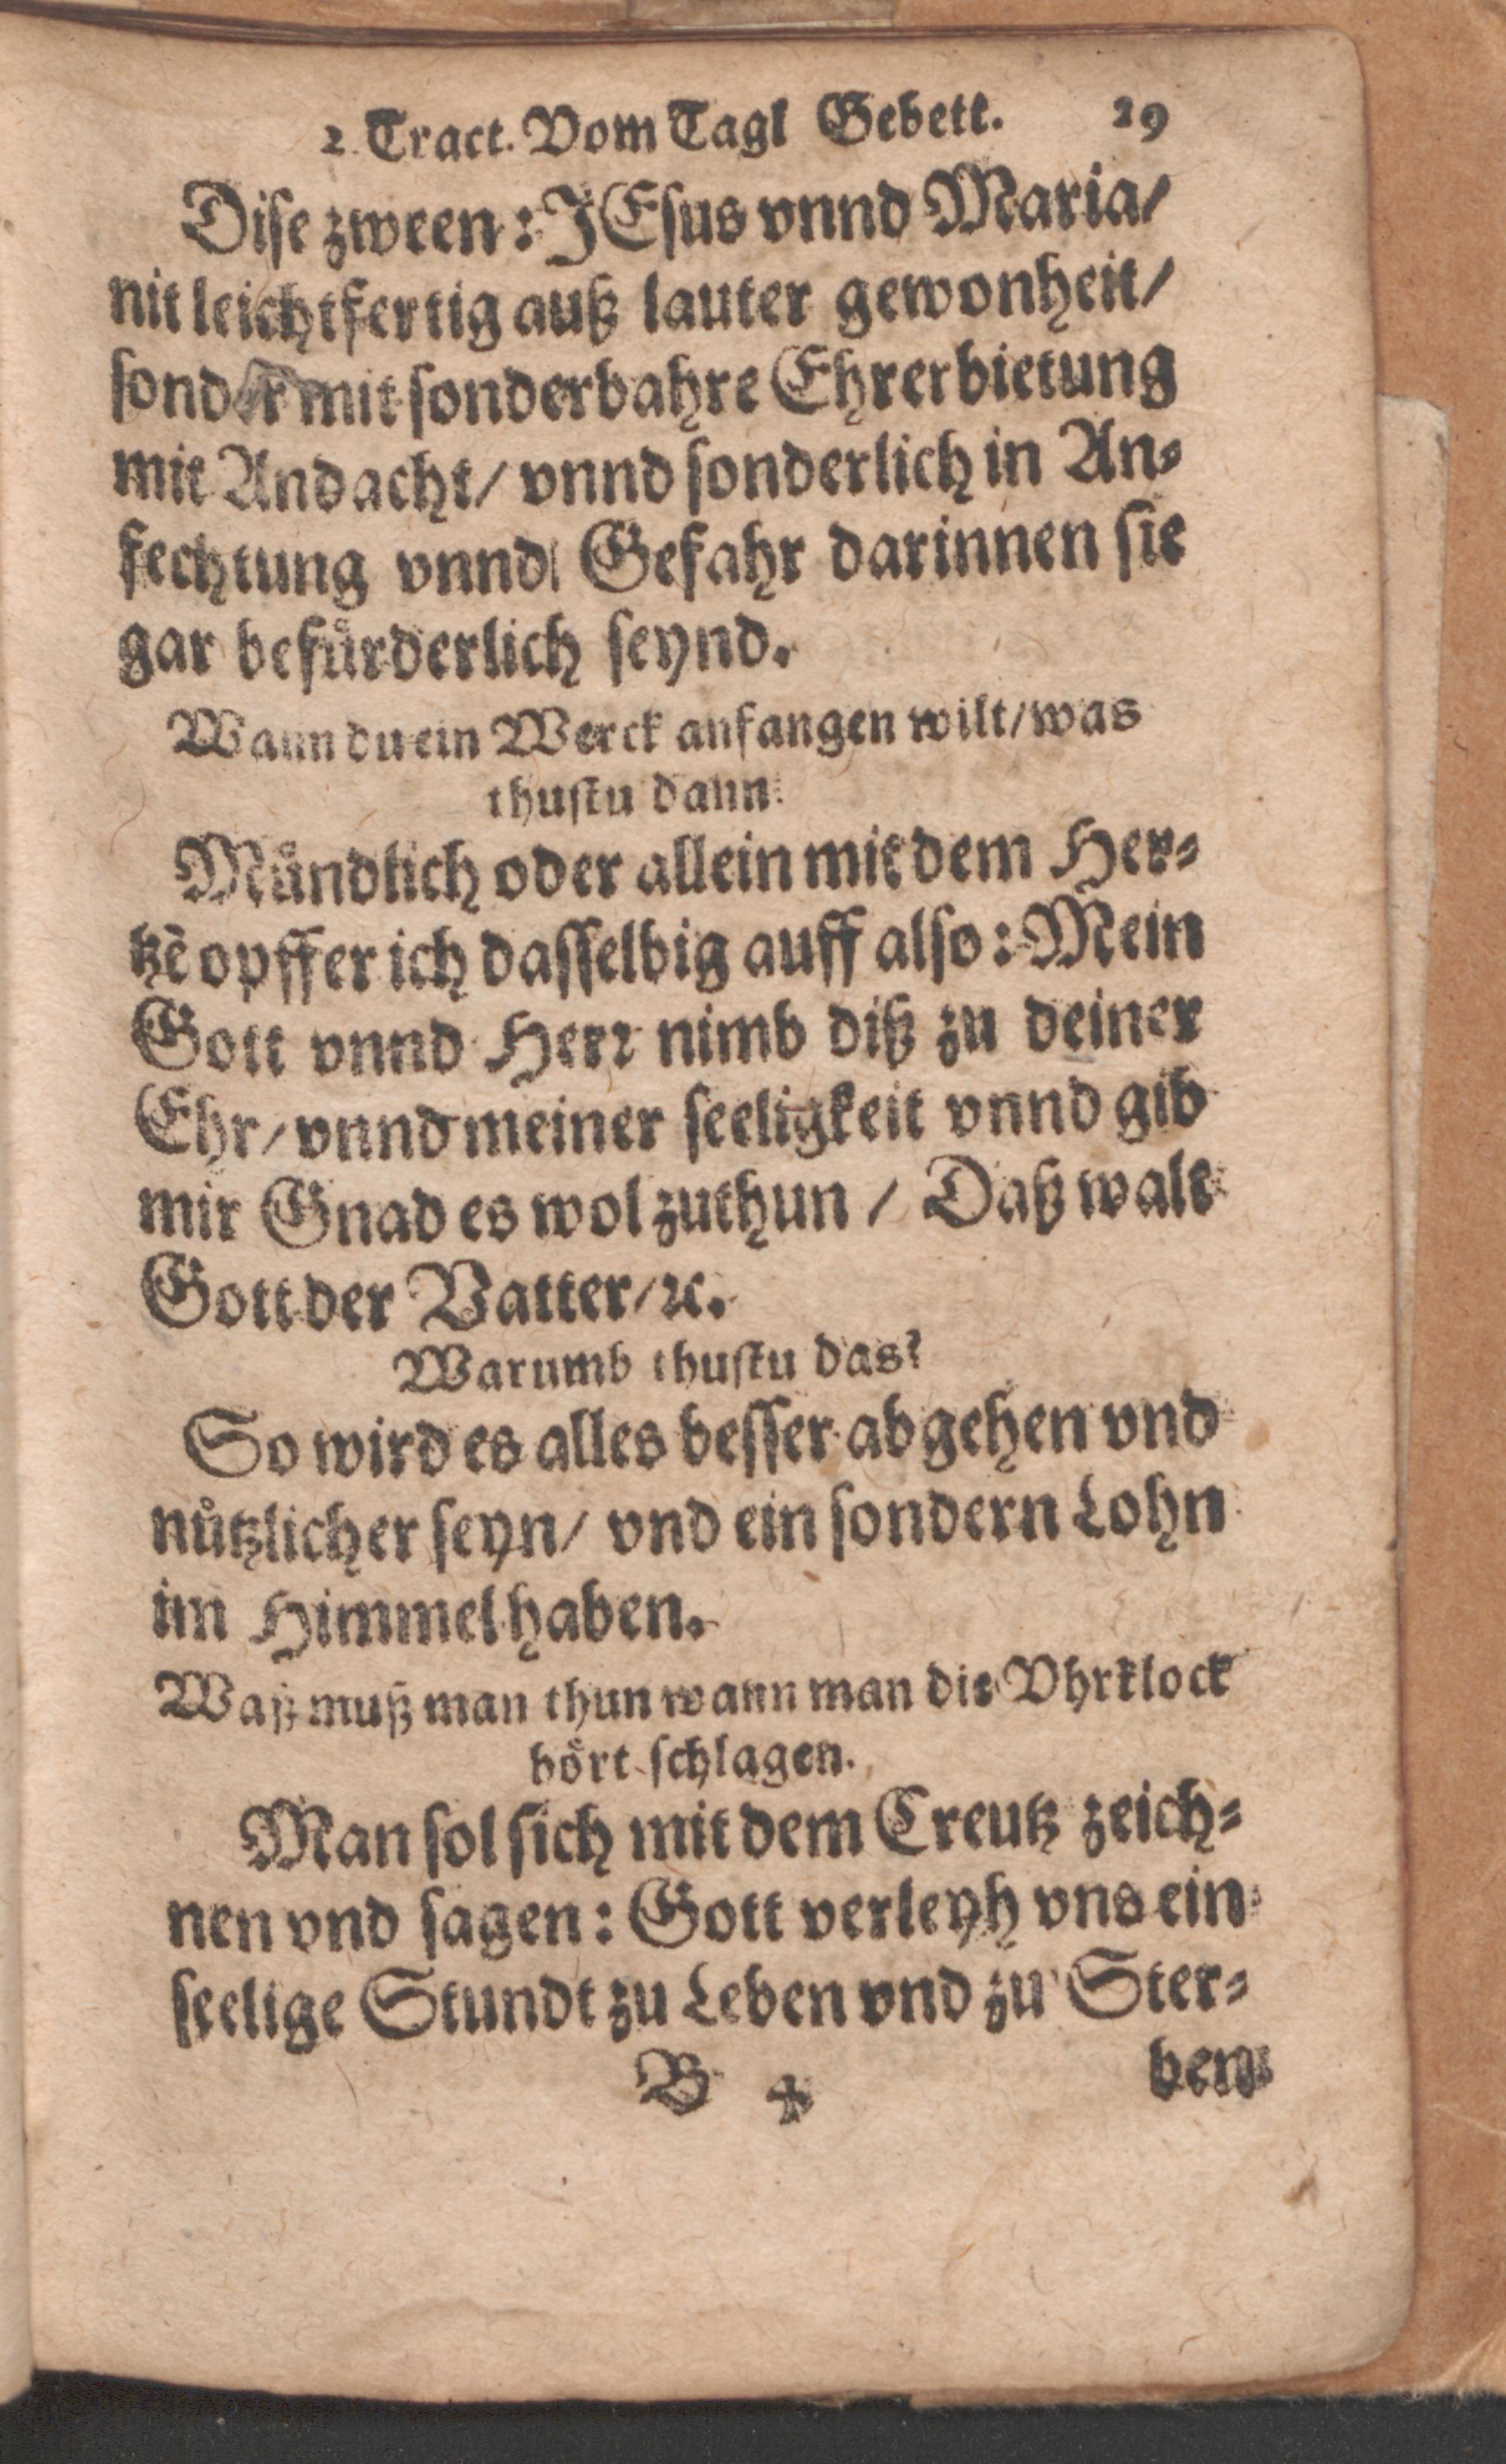 2. Tract. Vom Tagl Gebett. 29
Dise zween: JEsus vnnd Maria/
nit leichtfertig auß lauter gewonheit/
sonder mit sonderbahre Ehrerbietung
mit Andacht/ vnnd sonderlich in An-
fechtung vnnd Gefahr darinnen sie
gar befürderlich seynd.
Wann du ein Werck anfangen wilt/ was
thustu dann:
Mündlich oder allein mit dem Her-
tzē opffer ich dasselbig auff also: Mein
Gott vnnd Herr nimb diß zu deiner
Ehr/ vnnd meiner seeligkeit vnnd gib
mir Gnad es wol zuthun / Daß walt
Gott der Vatter/ ꝛc.
Warumb thustu das?
So wird es alles besser abgehen vnd
nützlicher seyn/ vnd ein sondern Lohn
im Himmel haben.
Waß muß man thun wann man die Vhrklock
hört schlagen.
Man sol sich mit dem Creutz zeich-
nen vnd sagen: Gott verleyh vns ein
seelige Stundt zu Leben vnd zu Ster-
B ✠ ben